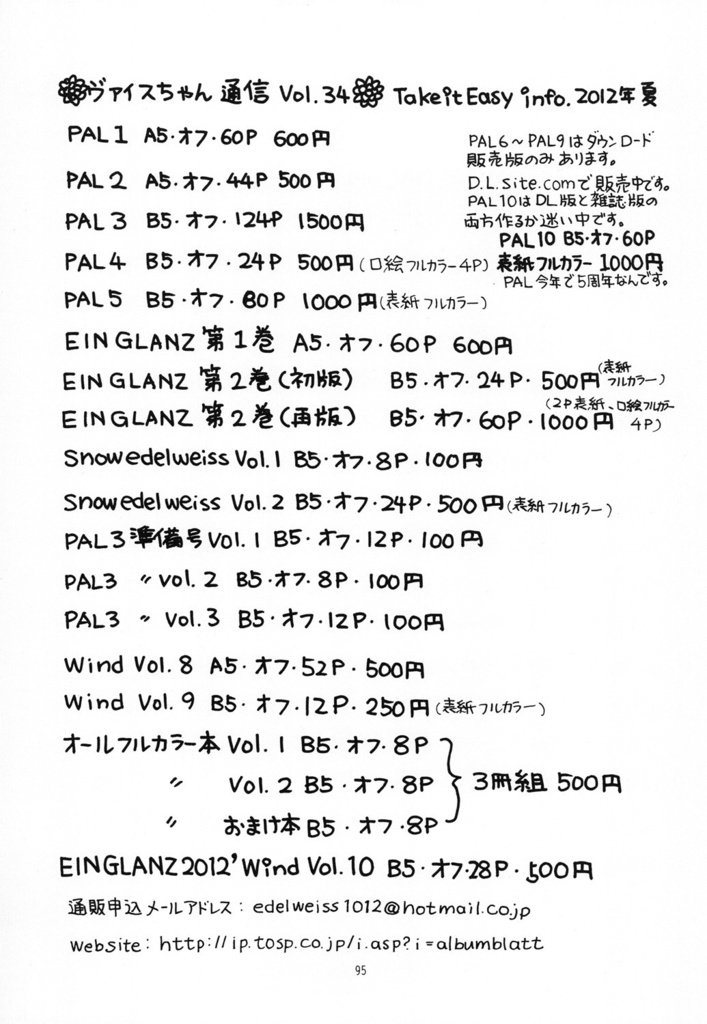 ヴァイスちゃん通信 Vol.34 TakeitEasy info. 2012年夏
PAL1 A5・オフ・60P 600円
PAL2 A5・オフ・44P 500円
PAL3 B5・オフ・124P 1500円
PAL4 B5・オフ・24P 500円(口絵フルカラー4P)
PAL5 B5・オフ・80P 1000円(表紙フルカラー)
PAL6～PAL9はダウンロード
販売版のみあります。
D.L.site.comで販売中です。
PAL10はDL版と雑誌版の
両方作るか迷い中です。
PAL10 B5・オフ・60P
表紙フルカラー 1000円
PAL今年で5周年なんです。
EINGLANZ 第1巻 A5・オフ・60P 600円
EINGLANZ 第2巻(初版) B5・オフ・24P・500円(表紙フルカラー)
EINGLANZ 第2巻(再版) B5・オフ・60P・1000円(2P表紙、口絵フルカラー4P)
Snowedelweiss Vol.1 B5・オフ・8P・100円
Snowedelweiss Vol.2 B5・オフ・24P・500円(表紙フルカラー)
PAL3準備号Vol.1 B5・オフ・12P・100円
PAL3 〃 Vol.2 B5・オフ・8P・100円
PAL3 〃 Vol.3 B5・オフ・12P・100円
Wind Vol.8 A5・オフ・52P・500円
Wind Vol.9 B5・オフ・12P・250円(表紙フルカラー)
オールフルカラー本 Vol.1 B5・オフ・8P
〃 Vol.2 B5・オフ・8P
〃 おまけ本 B5・オフ・8P
3冊組 500円
EINGLANZ2012'Wind Vol.10 B5・オフ・28P・500円
通販申込メールアドレス：edelweiss1012@hotmail.co.jp
Website：http://ip.tosp.co.jp/i.asp?i=albumblatt
95